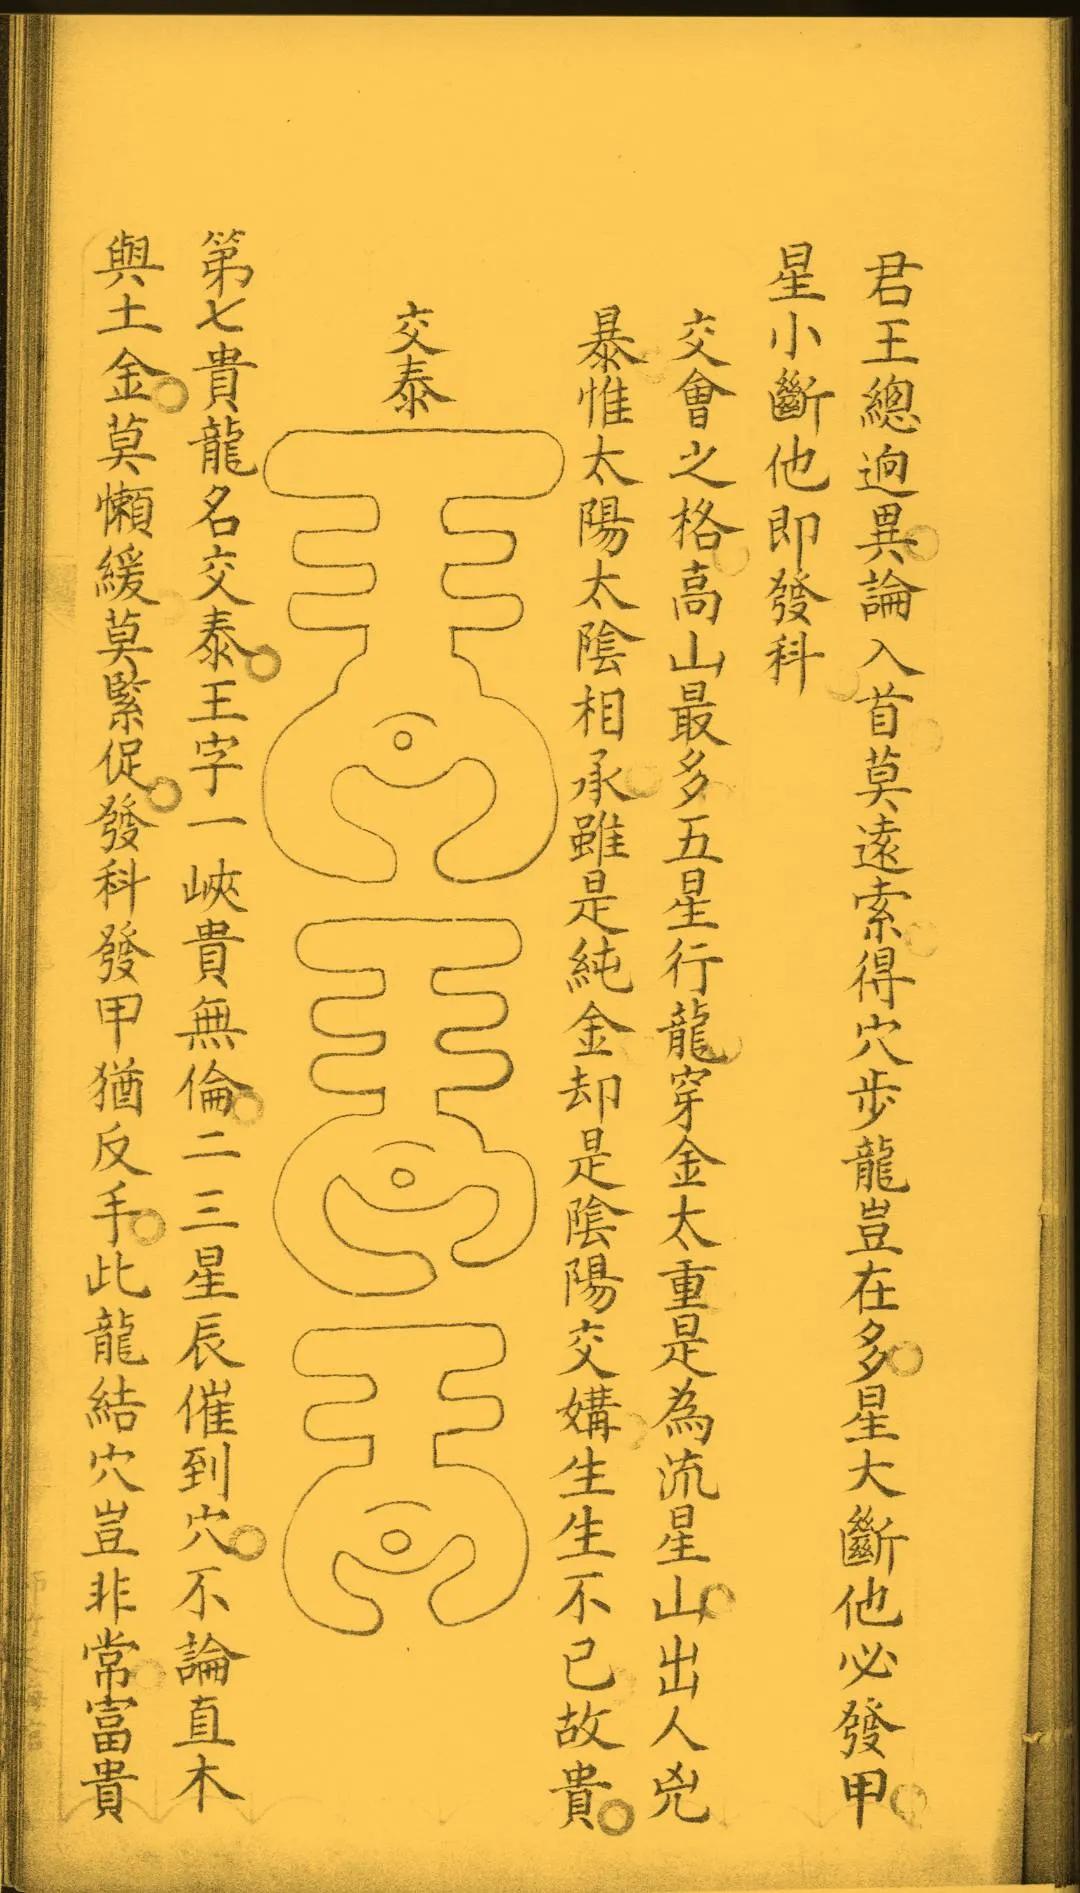 君王總逈異論入首莫遠索得穴步龍豈在多星大斷他必發甲
星小斷他即發科
交會之格高山最多五星行龍穿金太重是為流星山出人兇
暴惟太陽太陰相承雖是純金却是陰陽交媾生生不已故貴
交泰
第七貴龍名交泰王字一峽貴無倫二三星辰催到穴不論直木
與土金莫懶緩莫緊促發科發甲猶反手此龍結穴豈非常富貴